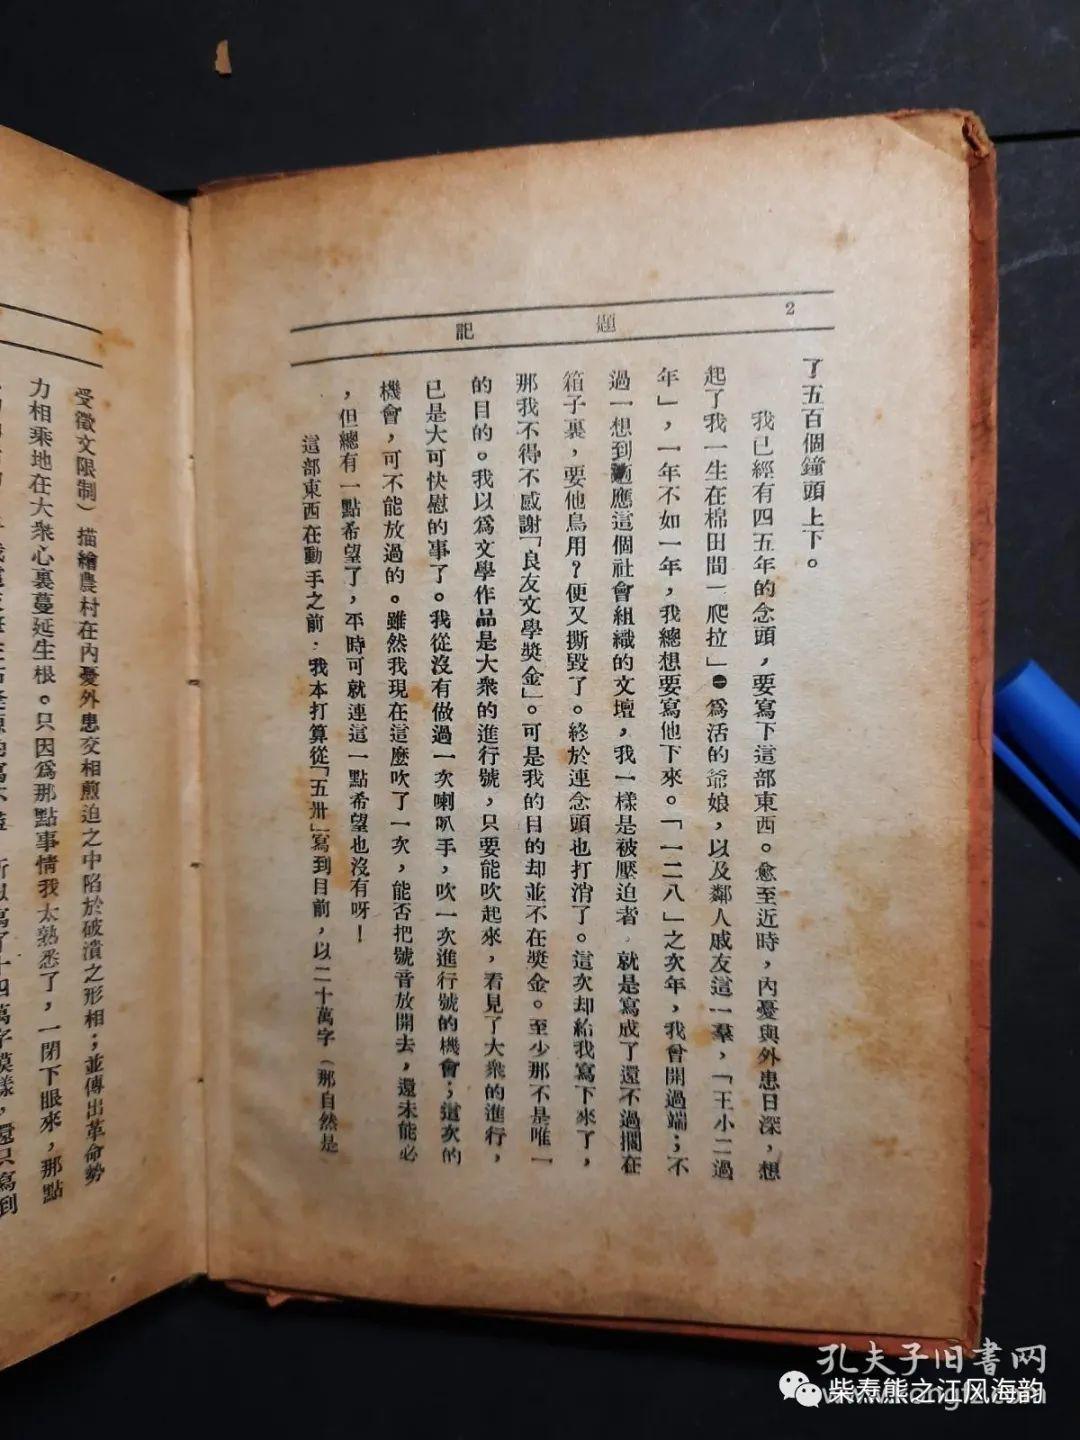 2
題記
了五百個鐘頭上下。
我已經有四五年的念頭，要寫下這部東西。愈至近時，內憂與外患日深，想
起了我一生在棉田間「爬拉」㊀爲活的爺娘，以及鄰人戚友這一羣，「王小二過
年」，一年不如一年，我總想要寫他下來。「一二八」之次年，我曾開過端；不
過一想到適應這個社會組織的文壇，我一樣是被壓迫者，就是寫成了還不過擱在
箱子裏，要他鳥用？便又撕毀了。終於連念頭也打消了。這次却給我寫下來了，
那我不得不感謝「良友文學獎金」。可是我的目的却並不在獎金。至少那不是唯一
的目的。我以爲文學作品是大衆的進行號，只要能吹起來，看見了大衆的進行，
已是大可快慰的事了。我從沒有做過一次喇叭手，吹一次進行號的機會；這次的
機會，可不能放過的。雖然我現在這麼吹了一次，能否把號音放開去，還未能必
，但總有一點希望了，平時可就連這一點希望也沒有呀！
這部東西在動手之前，我本打算從「五卅」寫到目前，以二十萬字（那自然是
受徵文限制）描繪農村在內憂外患交相煎迫之中陷於破潰之形相；並傳出革命勢
力相乘地在大衆心裏蔓延生根。只因爲那點事情我太熟悉了，一閉下眼來，那點
寫了十四萬字模樣，還只寫到
孔夫子旧书网
柴寿熊之江风海韵